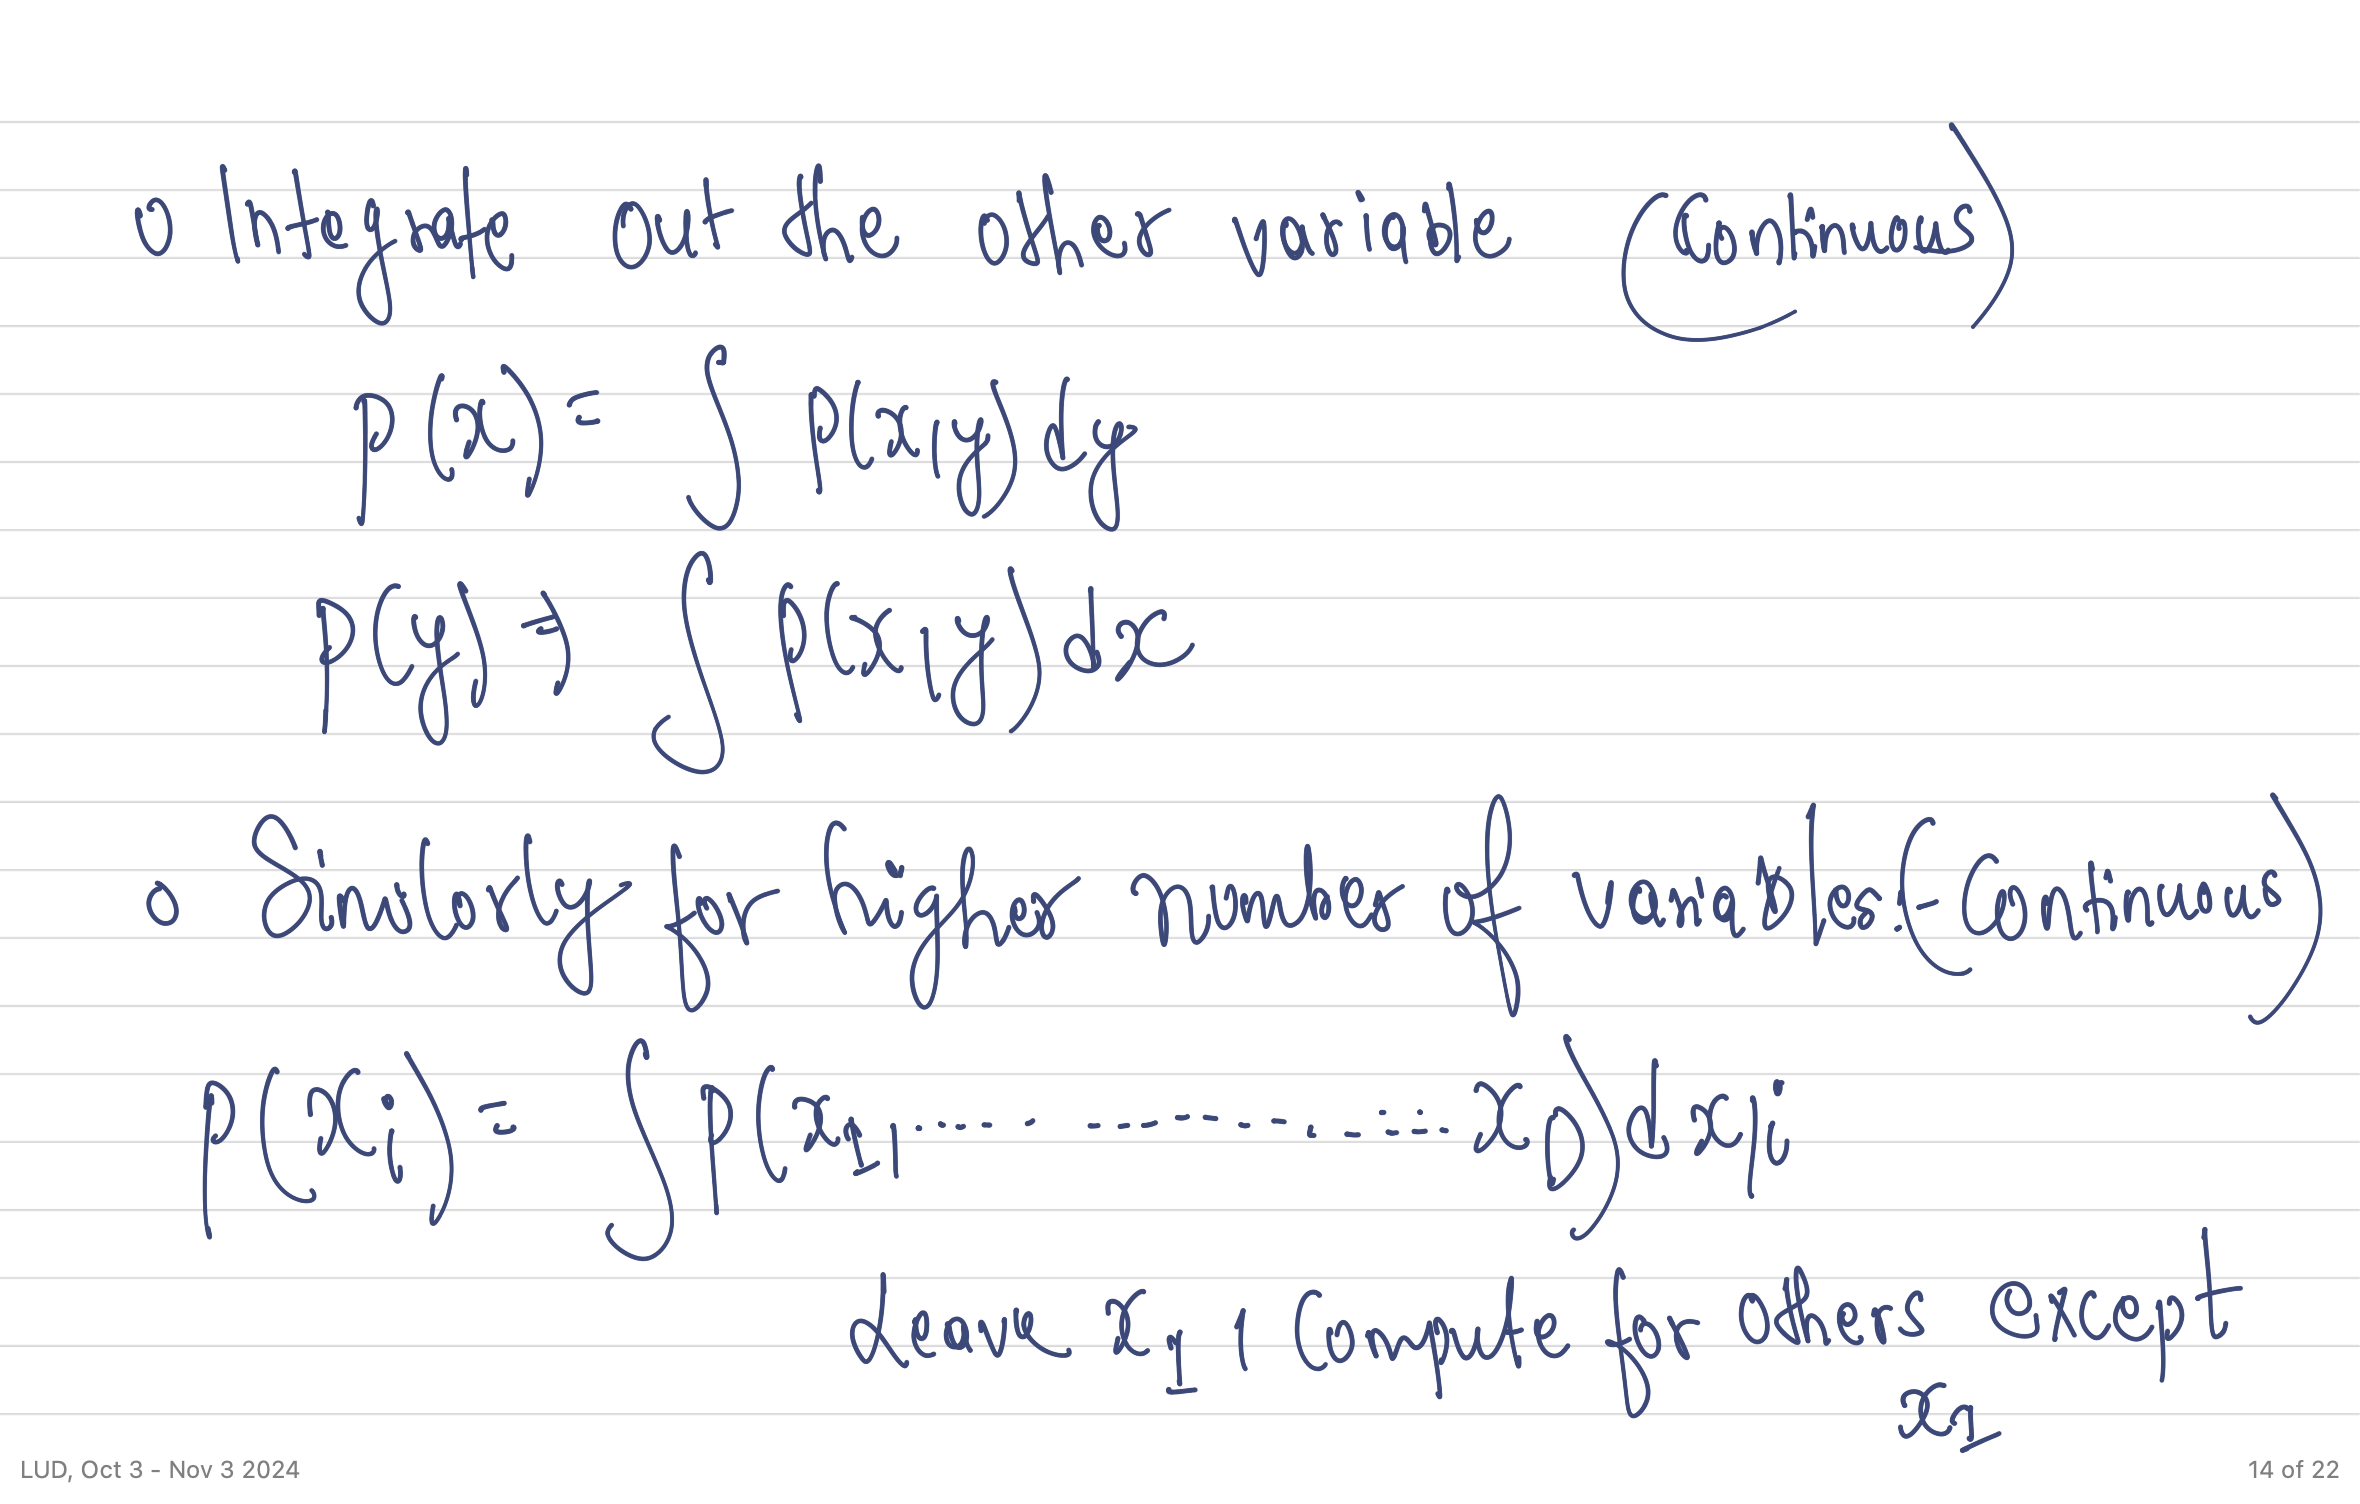 o Integrate out the other variable (Continuous)
p(x) = ∫ p(x, y) dy
p(y) ⇒ ∫ p(x, y) dx
o Similarly for higher number of variables:- (Continuous)
p(xi) = ∫ p(x1, ............ xD) dx\i
Leave x1, Compute for others except
x1
LUD, Oct 3 - Nov 3 2024
14 of 22